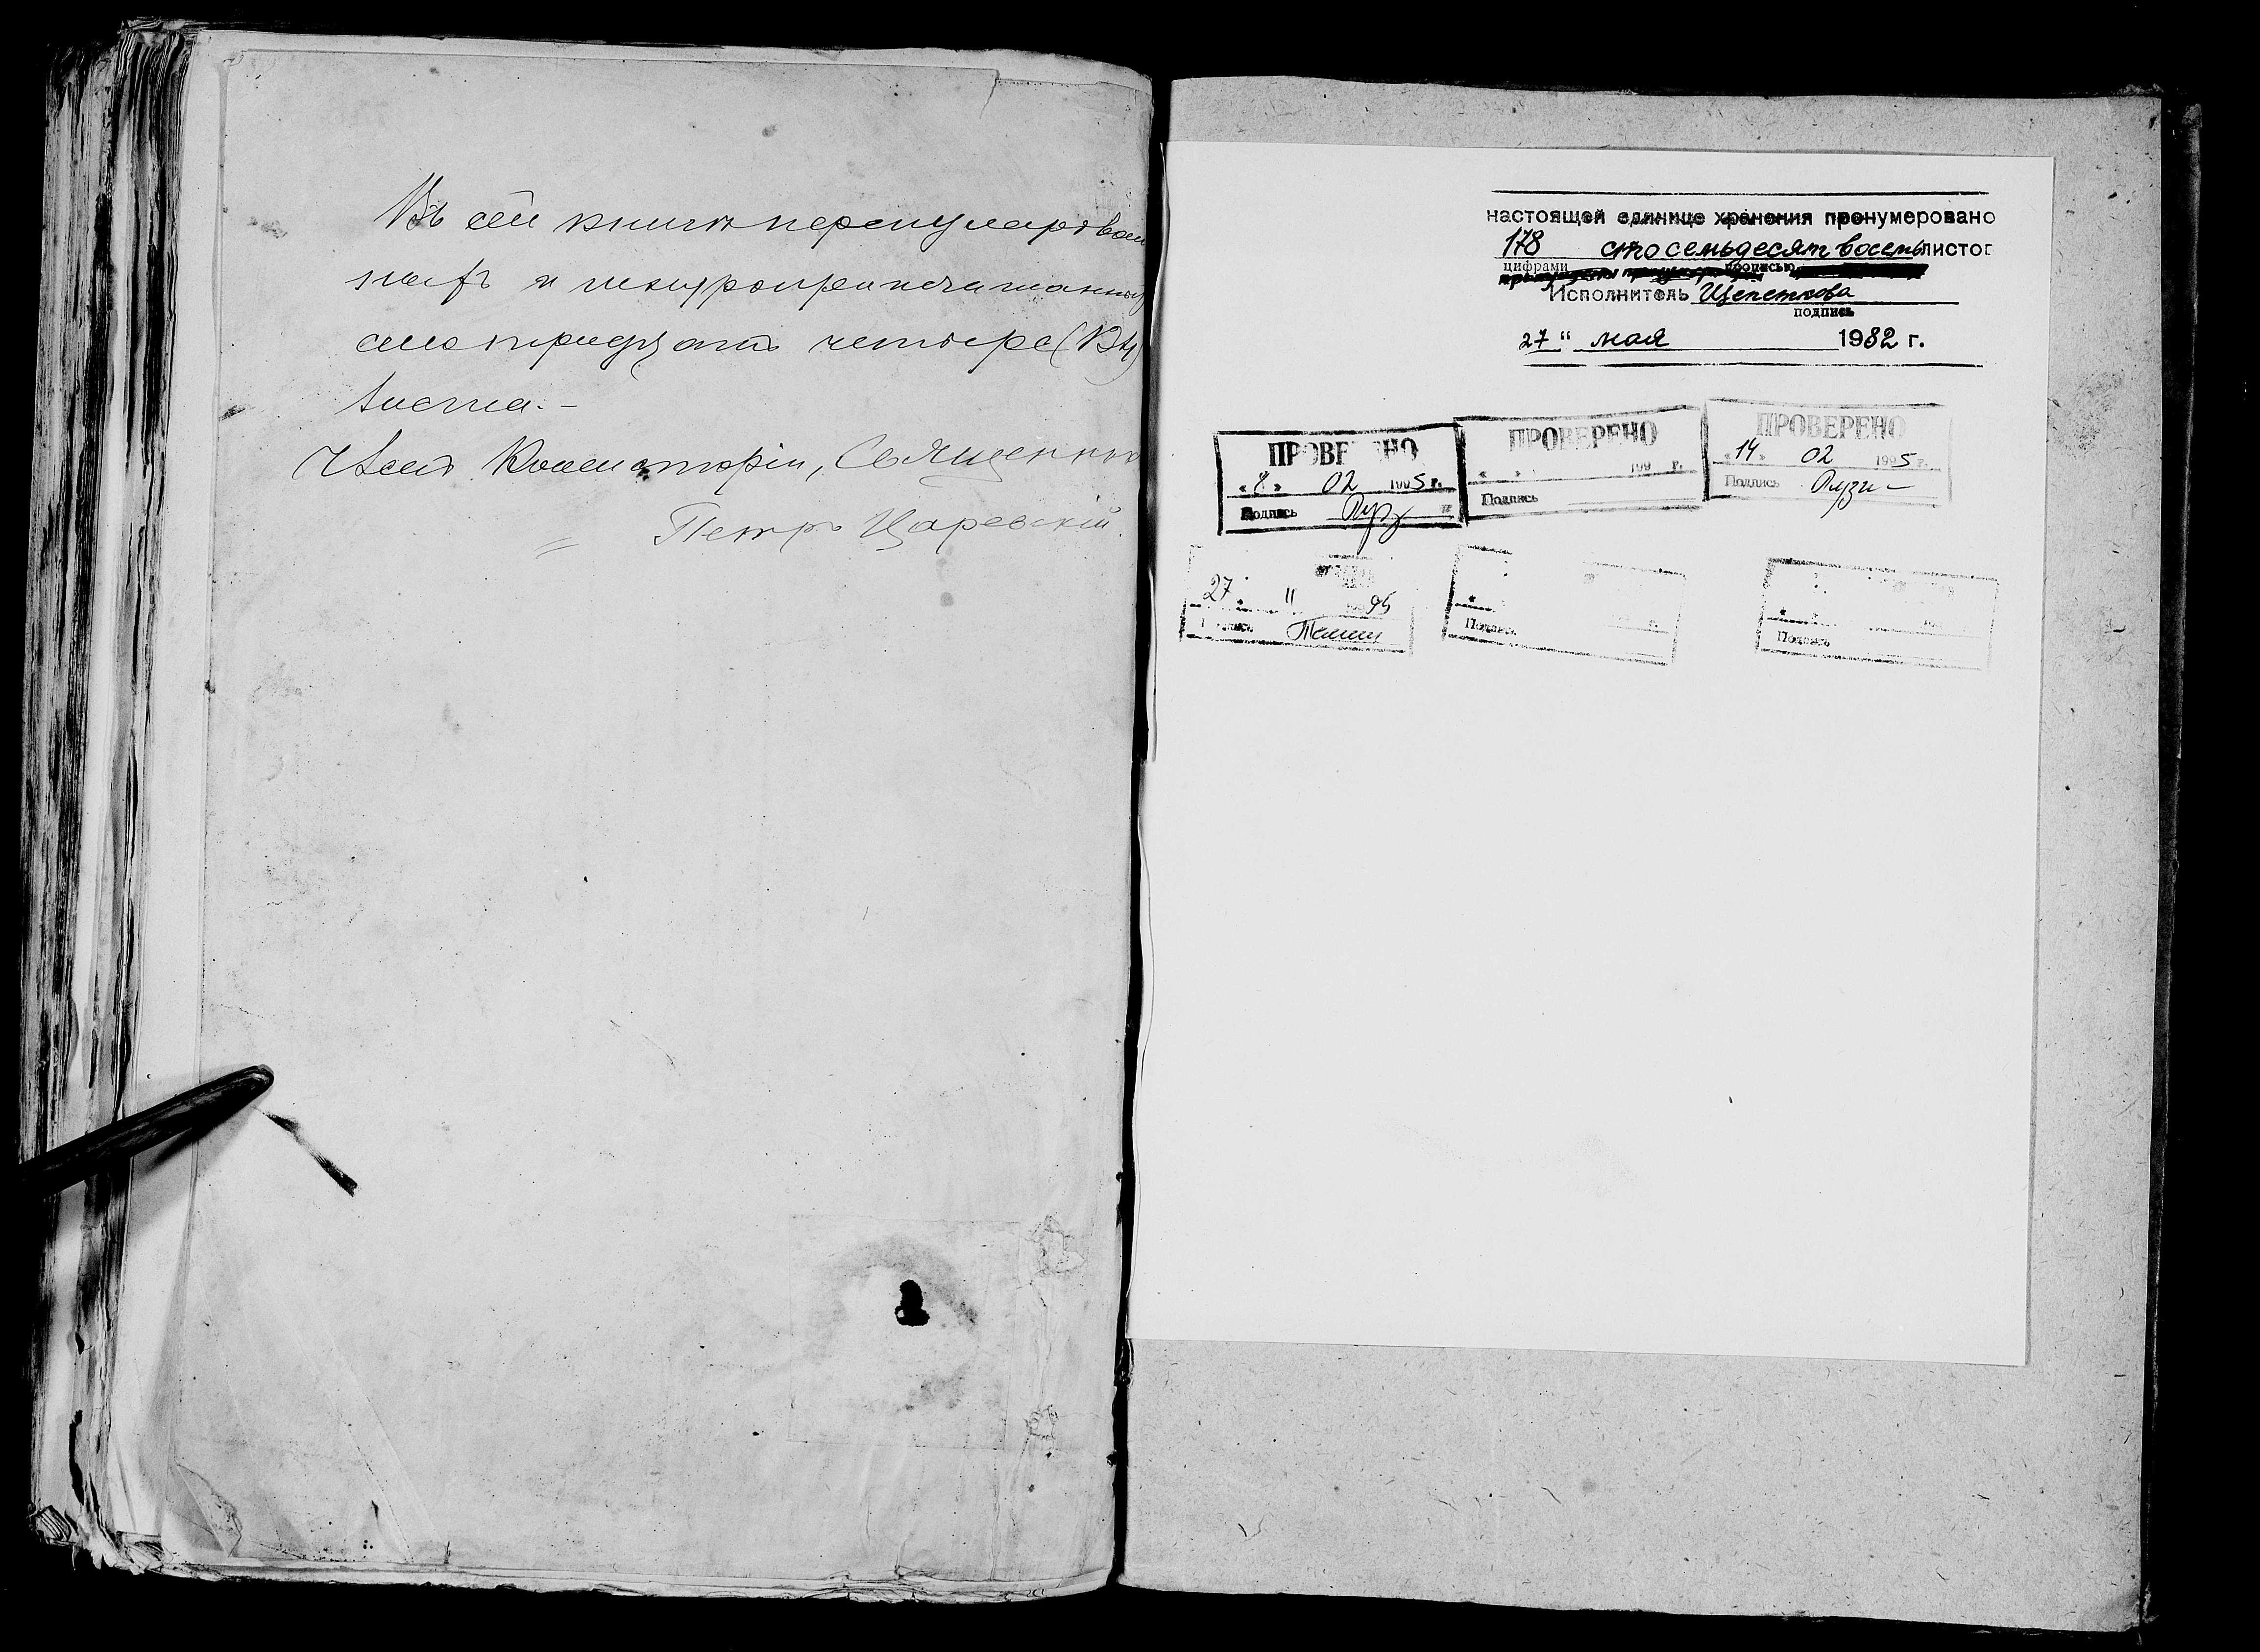 Въ сей книгѣ перенумерован
ныхъ и шнуроприпечатанныхъ
сто тридцать четыре (134)
листа. –
Членъ Консисторіи, Священникъ
Петръ Царевскій.
настоящей единице хранения пронумеровано
178 сто семьдесят восемь листов
цифрами прописью
Исполнитель Щепеткова
подпись
27 " мая 1982 г.
ПРОВЕРЕНО
« 8 » 02 1995 г.
Подпись
ПРОВЕРЕНО
« » 199 г.
Подпись
ПРОВЕРЕНО
« 14 » 02 1995 г.
Подпись
27 11 95
Подпись
Подпись
Подпись